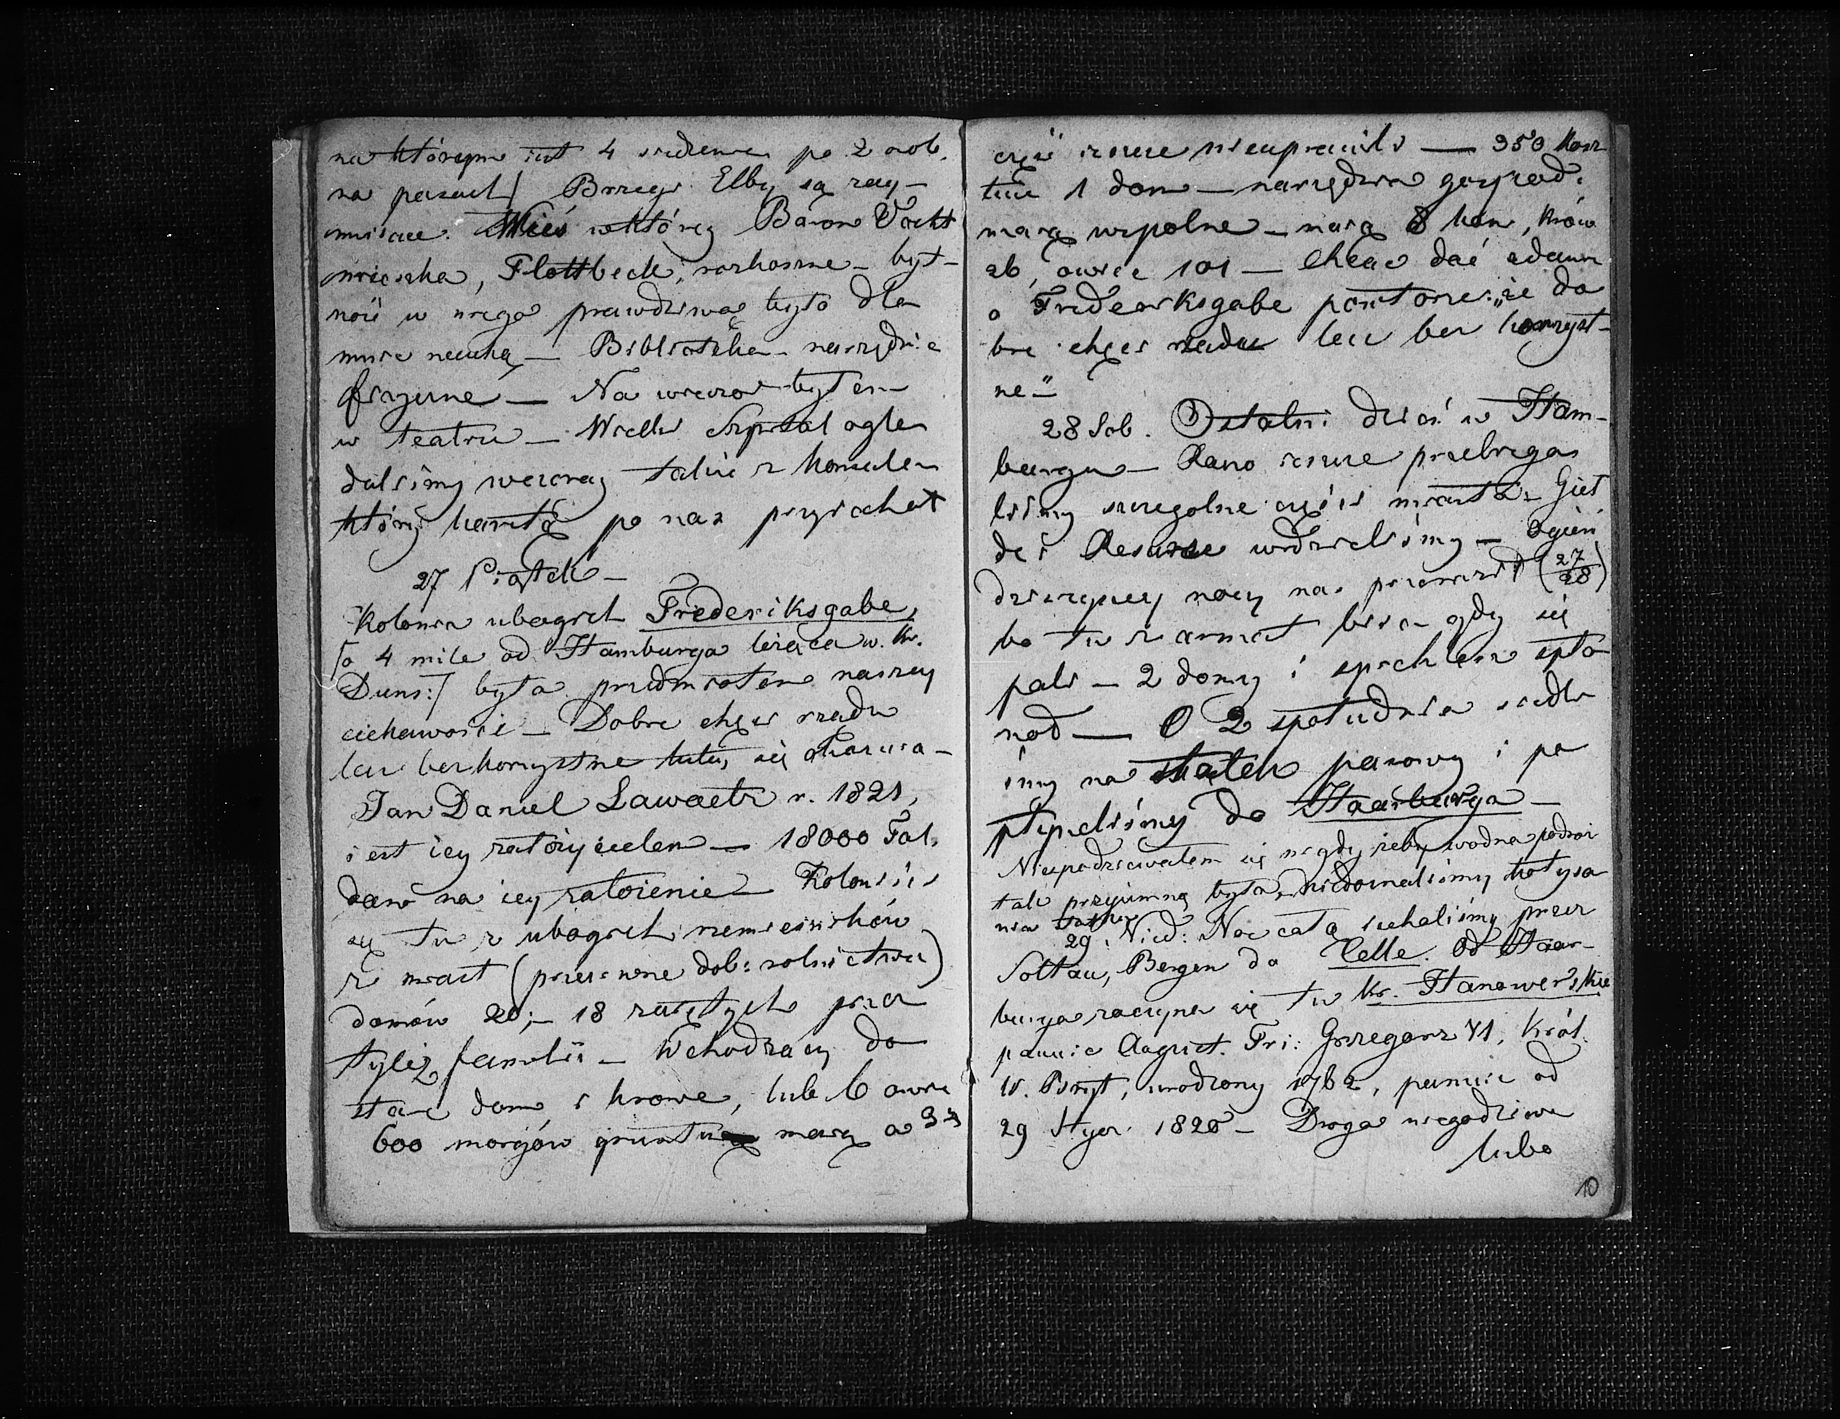 na którym iest 4 siedzenia po 2 osob.
na pasach/ Brzegi Elby są zay-
muiące. Wieś w którey Baron Voght
mieszka, Flottbeck, rozkoszne - byt-
ność u niego prawdziwą było dla
mnie nauką — Biblioteka - narzędzia
fizyczne — Na wieczor byłem
w teatrze — Wielki Szpital oglą
daliśmy wczoray także z konsulem
który karetą po nas przyiechał
27 Piątek —
Kolonia ubogich Frederiksgabe,
/o 4 mile od Hamburga leżąca w. Kr.
Duns:/ była przedmiotem naszey
ciekawości — Dobre chęci rządu
lecz bezkorzystne tutay się okazuia —
Jan Daniel Lawaetz r. 1821,
iest iey założycielem — 18000 Tal.
dano na iey założenie — Koloniści
są tu z ubogich rzemieślników
z miast (przeciwne dob: rolnictwu)
domów 20; — 18 zaiętych przez
tyleż familii — Wchodzący do
staie dom, 1 krowę, lub 6 owiec
600 morgów gruntu maią a 3
część ieszcze nieuprawili — 350 kosz
tuie 1 dom — narzędzia gospod:
maią wspolne — maią 8 koni, krów
26, owiec 101 — Chcąc dać zdanie
o Frederiksgabe powtorzę: „że do
bre chęci rządu lecz bez korzyst-
ne —"
28 Sob. Ostatni dzień w Ham-
burgu — Rano ieszcze przebiega
liśmy szczegolne części miasta: Gieł
dę i Resursę widzieliśmy — Ogień
dzisieyszey nocy nas przeraził (27/28)
bo tu z armat biią gdy się
pali — 2 domy i spichlerz spło
nął — O 2 z południa siedli
śmy na statek parowy i po
płynęliśmy do Haarburga —
Niespodziewałem się nigdy żeby wodna podroż
tak przyiemną była, niedoznaliśmy kołysa
nia
29. Nied: Noc całą iechaliśmy przez
Soltau, Bergen do Celle. Od Haar-
burga zaczyna się tu Kr. Hanowerskie
panuie August. Fri: Grzegorz VI, Król.
W. Bryt, urodzony 1762, panuie od
29 Stycz. 1820 — Droga niegodziwa
lubo
10